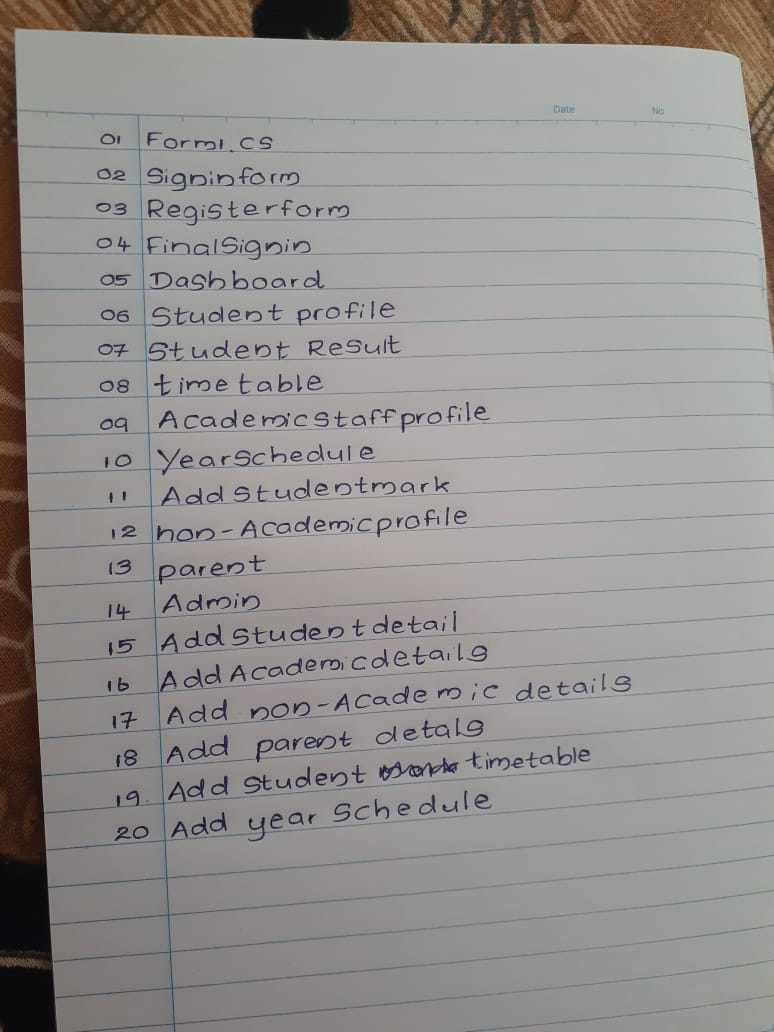 Date No
01 Form1.CS
02 Signinform
03 Registerform
04 FinalSignin
05 Dashboard
06 Student profile
07 Student Result
08 time table
09 Academicstaffprofile
10 Yearschedule
11 Add studentmark
12 non-Academicprofile
13 parent
14 Admin
15 Add Student detail
16 Add Academicdetails
17 Add non-Academic details
18 Add parent detals
19. Add student timetable
20 Add year Schedule